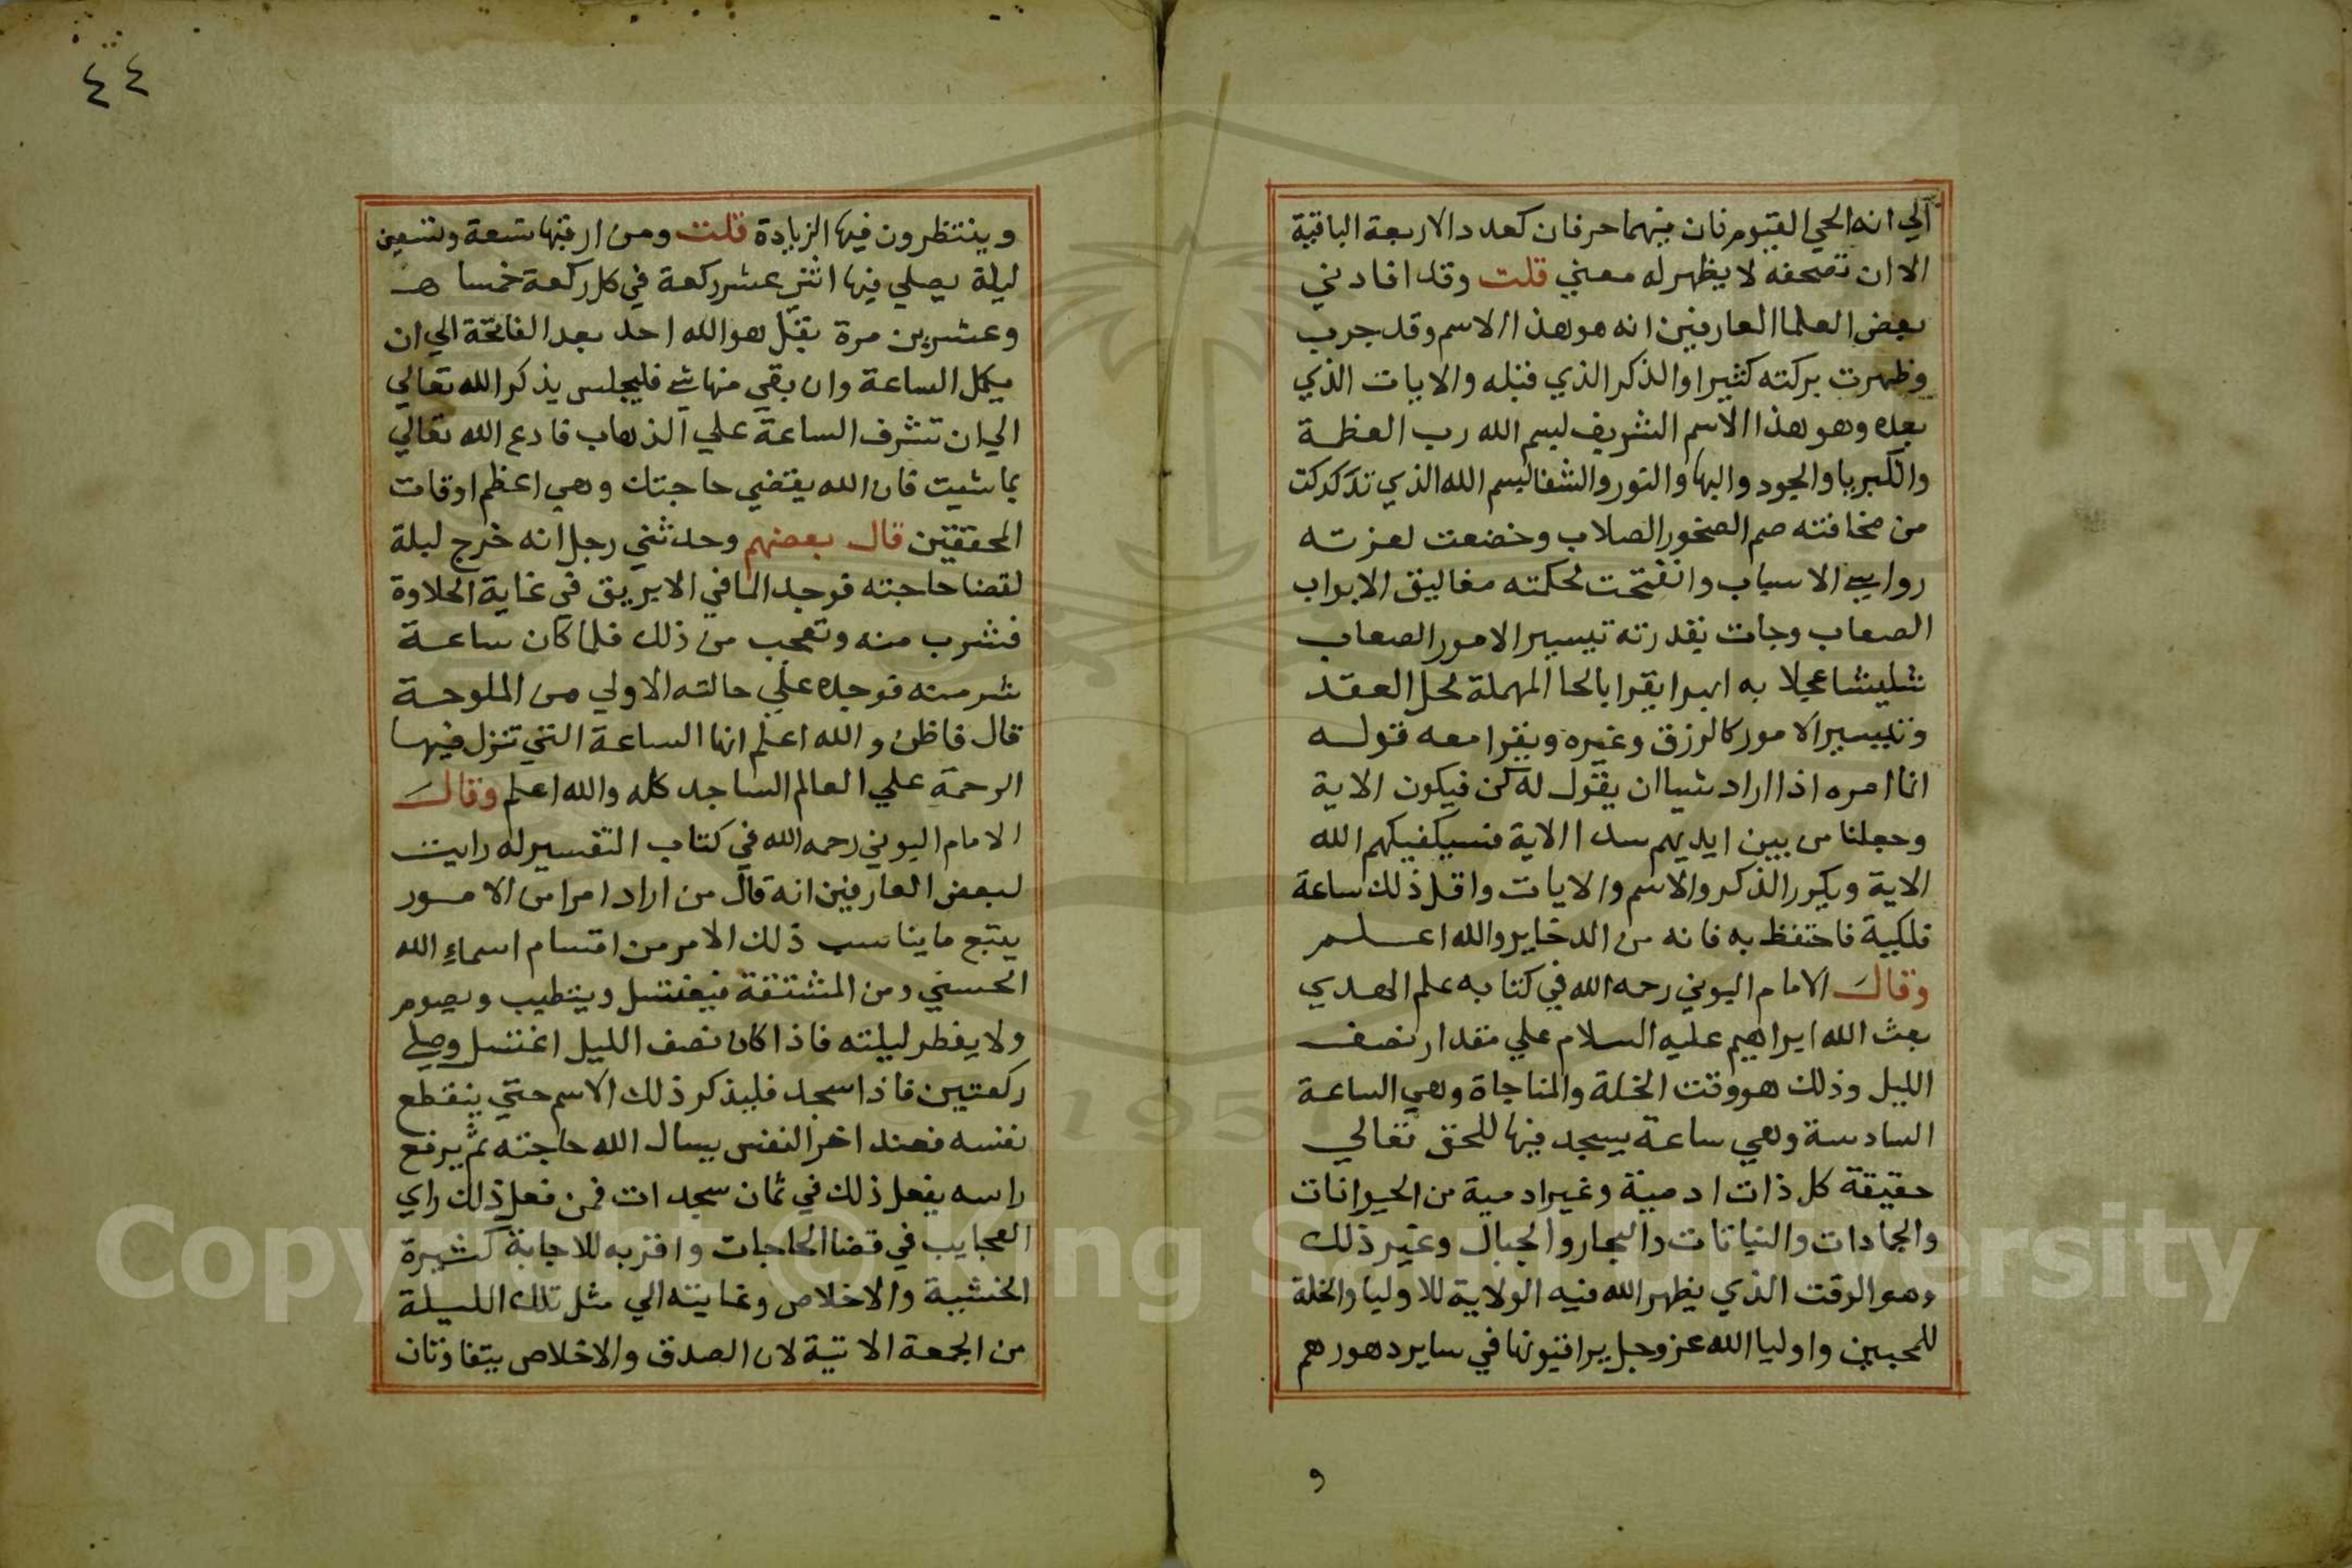 الي انه الحي القيوم فان فيهما حرفان كعدد الاربعة الباقية
الا ان تصحفه لا يظهر له معني قلت وقد افادني
بعض العلما العارفين انه هو هذا الاسم وقد جرب
وظهرت بركته كثيرا والذكر الذي قبله والايات الذي
بعده وهو هذا الاسم الشريف بسم الله رب العظمة
والكبريا والجود والبها والنور والشفا بسم الله الذي تدكدكت
من مخافته صم الصخور الصلاب وخضعت لعزته
رواسي الاسباب وانفتحت لحكمته مغاليق الابواب
الصعاب وجات بقدرته تيسير الامور الصعاب
عجلا به يقرا بالحا المهملة لحل العقد
وتيسير الامور كالرزق وغيره ويقرا معه قوله
انما امره اذا اراد شيا ان يقول له كن فيكون الاية
وجعلنا من بين ايديهم سدا الاية فسيكفيكهم الله
الاية ويكرر الذكر والاسم والايات واقل ذلك ساعة
فلكية فاحتفظ به فانه من الدخاير والله اعلم
وقال الامام البوني رحمه الله في كتابه علم الهدي
بعث الله ابراهيم عليه السلام علي مقدار نصف
الليل وذلك هو وقت الخلة والمناجاة وهي الساعة
السادسة وهي ساعة يسجد فيها للحق تعالي
حقيقة كل ذات ادمية وغير ادمية من الحيوانات
والجمادات والنباتات والبحار والجبال وغير ذلك
وهو الوقت الذي يظهر الله فيه الولاية للاوليا والخلة
للمحبين واوليا الله عز وجل يراقبونها في ساير دهورهم
و
٤٤
وينتظرون فيها الزيادة قلت ومن ارقبها تسعة وتسعين
ليلة يصلي فيها اثني عشر ركعة في كل ركعة خمسا
وعشرين مرة بقل هو الله احد بعد الفاتحة الي ان
يكمل الساعة وان بقي منها شي فليجلس يذكر الله تعالي
الي ان تشرف الساعة علي الذهاب فادع الله تعالي
بما شيت فان الله يقتضي حاجتك وهي اعظم اوقات
المحققين قال بعضهم وحدثني رجل انه خرج ليلة
لقضا حاجته فوجد الما في الابريق في غاية الحلاوة
فشرب منه وتعجب من ذلك فلما كان ساعة
شرمنه فوجده علي حالته الاولي من الملوحة
قال فاظن والله اعلم انها الساعة التي تنزل فيها
الرحمة علي العالم الساجد كله والله اعلم وقال
الامام البوني رحمه الله في كتاب التفسير له رايت
لبعض العارفين انه قال من اراد امرا من الامور
يتبع ما يناسب ذلك الامر من اقسام اسماء الله
الحسني ومن المشتقة فيغتسل ويتطيب ويصوم
ولا يفطر ليلته فاذا كان نصف الليل اغتسل وصلي
ركعتين فاذا سجد فليذكر ذلك الاسم حتي ينقطع
نفسه فعند اخر النفس يسال الله حاجته ثم يرفع
راسه يفعل ذلك في ثمان سجدات فمن فعل ذلك راي
العجايب في قضا الحاجات واقربه للاجابة كثيرة
الخشية والاخلاص وغايته الي مثل تلك الليلة
من الجمعة الاتية لان الصدق والاخلاص يتفاوتان
Copyright © King Saud University
1957